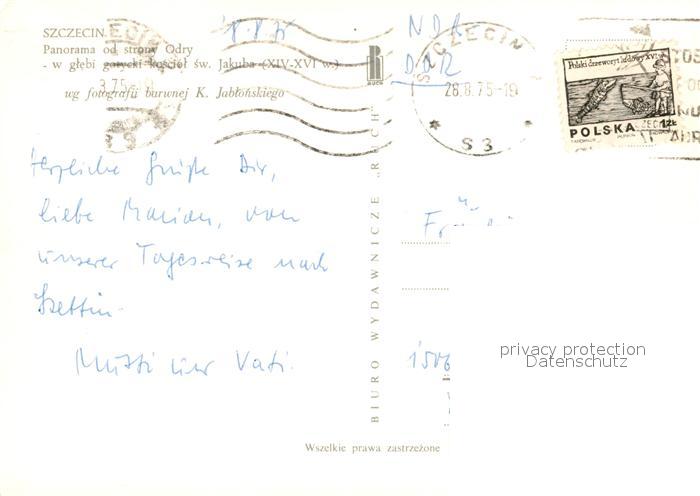 SZCZECIN
Panorama od strony Odry
- w głębi gotycki kościół św. Jakuba (XIV-XVI w.)
wg fotografii barwnej K. Jabłońskiego
RUCH
NDR
DDR
SZCZECIN
28.8.75-19
* S 3 *
Polski drzeworyt ludowy XVI w.
1 ZŁ
POLSKA
Herzliche Grüße Dir,
liebe Marian, von
unserer Tagesreise nach
Stettin.
Mutti und Vati.
BIURO WYDAWNICZE „RUCH"
1506
privacy protection
Datenschutz
Wszelkie prawa zastrzeżone